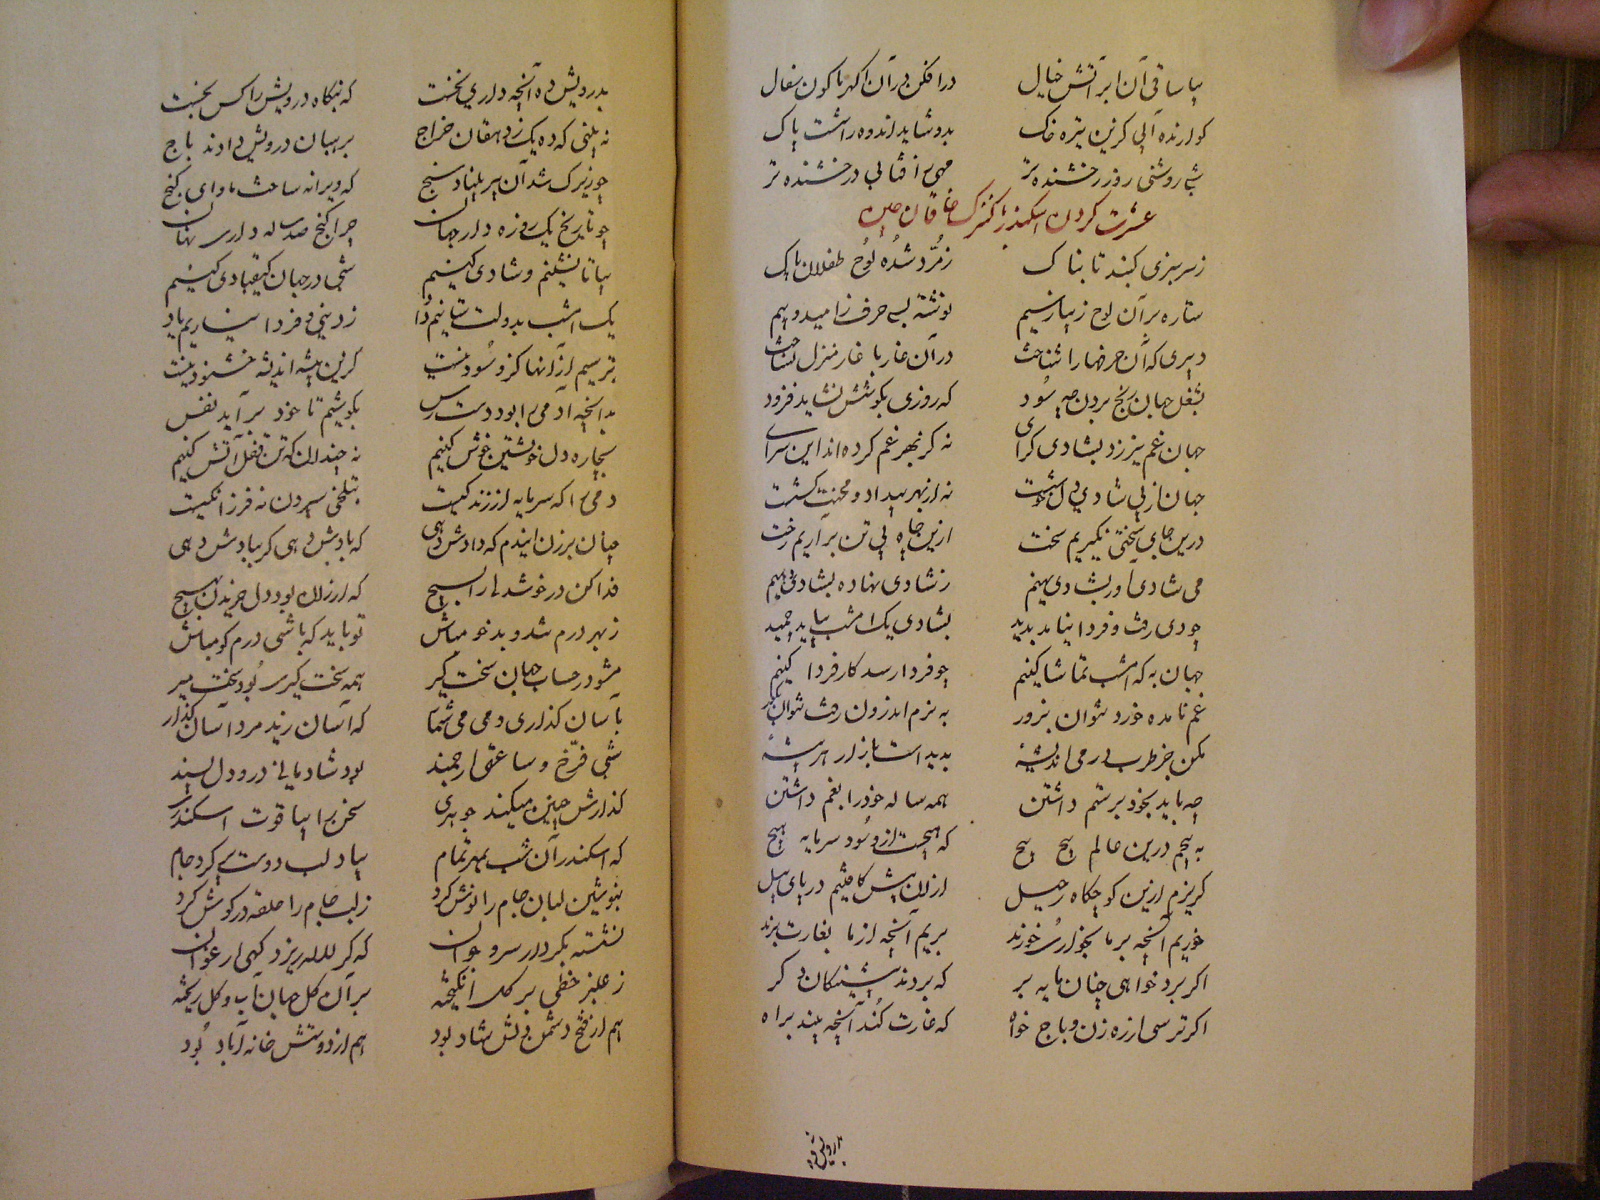 بیا ساقی آن ابر آتش خیال درافکن در آن اکهربا کون سفال
کوارنده آبی کزین تیره خاک بدو شاید اندوه را شست پاک
شبی روشنی روز رخشنده تر مهی ز آفتابی درخشنده تر
عشرت کردن اسکندر با کنیزک خاقان چین
ز سرسبزی کنبد تابناک زمرّد شده لوح طفلان پاک
ستاره بر آن لوح زیبا ز سیم نوشته بسی حرف ز امید و بیم
دبیری که آن حرفها را شناخت در آن غار با غار منزل نساخت
بشغل جهان رنج بردن چه سود که روزی بکوشش نشاید فزود
جهان غم نیرزد بشادی کرای نه کز بهر غم کرده اند این سرای
جهان از پی شادی و دل خوشیست نه از بهر بیداد و محنت کشیست
درین جای سختی نکیریم سخت ازین چاه بی تن برآریم رخت
می شادی آور بشادی نهیم ز شادی نهاده بشادی دهیم
چو دی رفت و فردا نیامد پدید بشادی یک امشب بباید چمید
جهان به که امشب تماشا کنیم چو فردا رسد کار فردا کنیم
غم نامده خورد نتوان بزور به بزم اندرون رفت نتوان بکور
مکن جز طرب در می اندیشهٔ پدید است بازار هر پیشهٔ
چه باید بخود بر ستم داشتن همه ساله خود را بغم داشتن
به پیچم درین عالم پیچ پیچ که هیچست ازو سود سرمایه هیچ
کریزم ازین کوچکاه رحیل از آن پیش کافتیم در پای پیل
خوریم آنچه بر ما بخواری خورند بریم آنچه از ما بغارت برند
اکر برد خواهی چنان مایه بر که بردند پیشینکان دکر
اکر ترسی از رهزن و باج خواه که غارت کند آنچه بیند براه
بدرویش ده
بدرویش ده آنچه داری نخست که بنکاه درویش را کس نجست
نه بینی که ده یک ز دهقان خراج بر بیان درویش دادند باج
چو زیرک شد آن پیر بنیاد سنج که ویرانه ساخت ماوای کنج
چو تاریخ یک روزه دارد جهان چرا کنج صد ساله داری نهان
بیا تا نشینیم و شادی کنیم شبی در جهان کیقبادی کنیم
یک امشب بدولت ستانیم داد ز دینی و فردا نیاریم یاد
بترسیم از آنها کزو سود نیست کزین پیشه اندیشه خشنود نیست
بدانچه آدمی را بود دست رس بکوشیم تا خود برآید نفس
بچاره دل خویشتن خوش کنیم نه چندان که تن نعل آتش کنیم
دمی را که سرمایه از زندکیست بتلخی سپردن نه فرزانکیست
چنان بر زن این دم که دادش دهی که بادش دهی کر ببادش دهی
فدا کن درم خوشدلی را بسیچ که ارزان بود دل خریدن بهیچ
ز بهر درم تند و بدخو مباش تو باید که باشی درم کو مباش
مشو در حساب جهان سخت کیر همه سخت کیری بود سخت میر
بآسان کذاری دمی می شمار که آسان زید مرد آسان کذار
شبی فرّخ و ساعتی ارجمند بود شادمانی درو دل پسند
کذارش چنین میکند جوهری سخن را بیاقوت اسکندری
که اسکندر آن شب بمهر تمام بیاد لب دوست پر کرد جام
بنوشین لبان جام را نوش کرد ز لب جام را حلقه در کوش کرد
نشسته بکردار سرو جوان که که لاله ریزد کهی ارغوان
ز عنبر خطی بر کل انکیخته بر آن کل جهان آب و کل ریخته
هم از فتح دشمن دلش شاد بود هم از دوستش خانه آباد بود